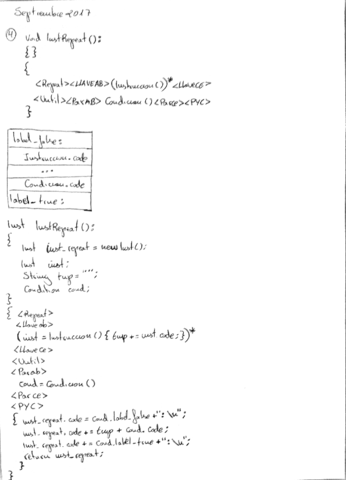 Septiembre 2017
④ void InstRepeat():
{}
{
<Repeat><LLAVEAB>(Instruccion())*<LLAVECE>
<Until><ParAB> Condicion()<ParCE><PYC>
}
label_false:
Instruccion.code
...
Condicion.code
label_true:
Inst InstRepeat():
{
Inst inst_repeat = new Inst();
Inst inst;
String tmp = "";
Condition cond;
}
{ <Repeat>
<Llaveab>
(inst = Instruccion() { tmp += inst.code; })*
<LlaveCe>
<Until>
<Parab>
cond = Condicion()
<ParCe>
<PYC>
{ inst_repeat.code = cond.label_false + ": \n";
inst_repeat.code += tmp + cond.code;
inst_repeat.code += cond.label_true + ": \n";
return inst_repeat;
}
}